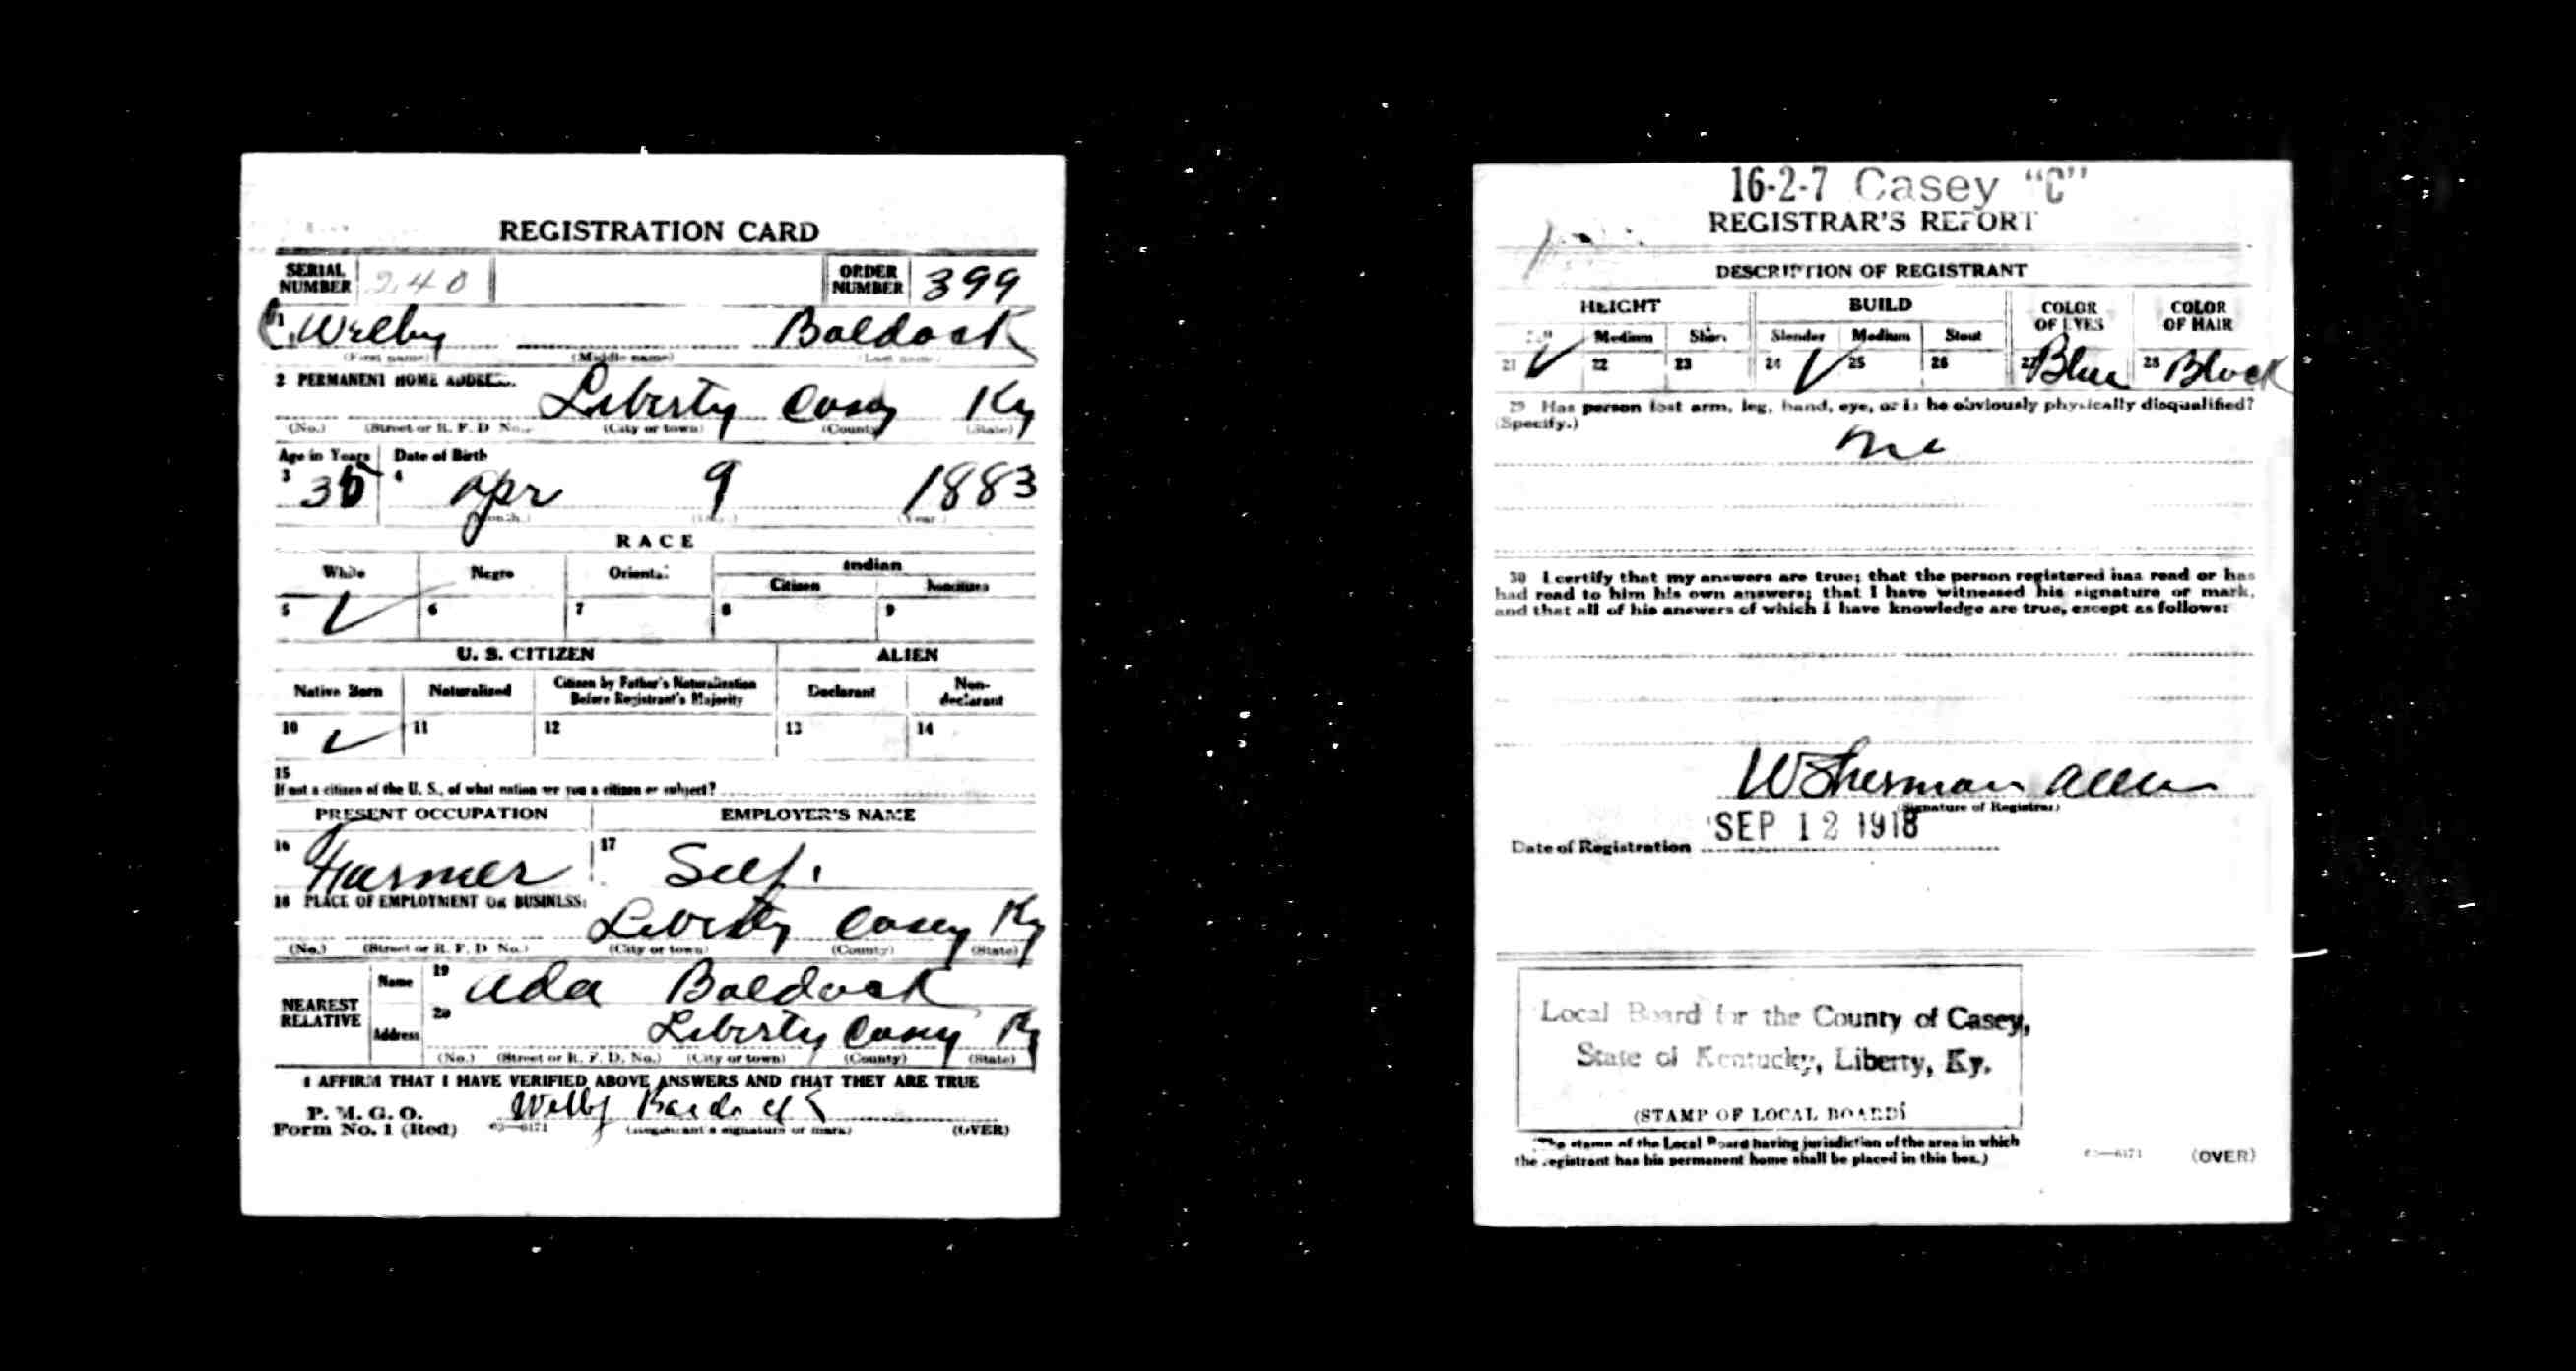 REGISTRATION CARD
SERIAL NUMBER 240 ORDER NUMBER 399
1 Welby Baldock
(First name) (Middle name) (Last name)
2 PERMANENT HOME ADDRESS:
Liberty Casey Ky
(No.) (Street or R. F. D. No.) (City or town) (County) (State)
Age in Years Date of Birth
3 35 4 Apr 9 1883
(Month.) (Day.) (Year.)
RACE
White Negro Oriental Indian
Citizen Noncitizen
5 6 7 8 9
U. S. CITIZEN ALIEN
Native Born Naturalized Citizen by Father's Naturalization Before Registrant's Majority Declarant Non-declarant
10 11 12 13 14
15
If not a citizen of the U. S., of what nation are you a citizen or subject?
PRESENT OCCUPATION EMPLOYER'S NAME
16 Farmer 17 Self.
18 PLACE OF EMPLOYMENT OR BUSINESS:
Liberty Casey Ky
(No.) (Street or R. F. D. No.) (City or town) (County) (State)
NEAREST RELATIVE
Name 19 Ada Baldock
Address 20 Liberty Casey Ky
(No.) (Street or R. F. D. No.) (City or town) (County) (State)
I AFFIRM THAT I HAVE VERIFIED ABOVE ANSWERS AND THAT THEY ARE TRUE
P. M. G. O.
Form No. 1 (Red) Welby
(Registrant's signature or mark) (OVER)
16-2-7 Casey "C"
REGISTRAR'S REPORT
DESCRIPTION OF REGISTRANT
HEIGHT BUILD COLOR OF EYES COLOR OF HAIR
Tall Medium Short Slender Medium Stout
21 22 23 24 25 26 27 Blue 28 Black
29 Has person lost arm, leg, hand, eye, or is he obviously physically disqualified?
(Specify.)
30 I certify that my answers are true; that the person registered has read or has
had read to him his own answers; that I have witnessed his signature or mark,
and that all of his answers of which I have knowledge are true, except as follows:
W Sherman Allen
(Signature of Registrar)
Date of Registration SEP 12 1918
Local Board for the County of Casey,
State of Kentucky, Liberty, Ky.
(STAMP OF LOCAL BOARD)
(The stamp of the Local Board having jurisdiction of the area in which
the registrant has his permanent home shall be placed in this box.)
63—6171 (OVER)